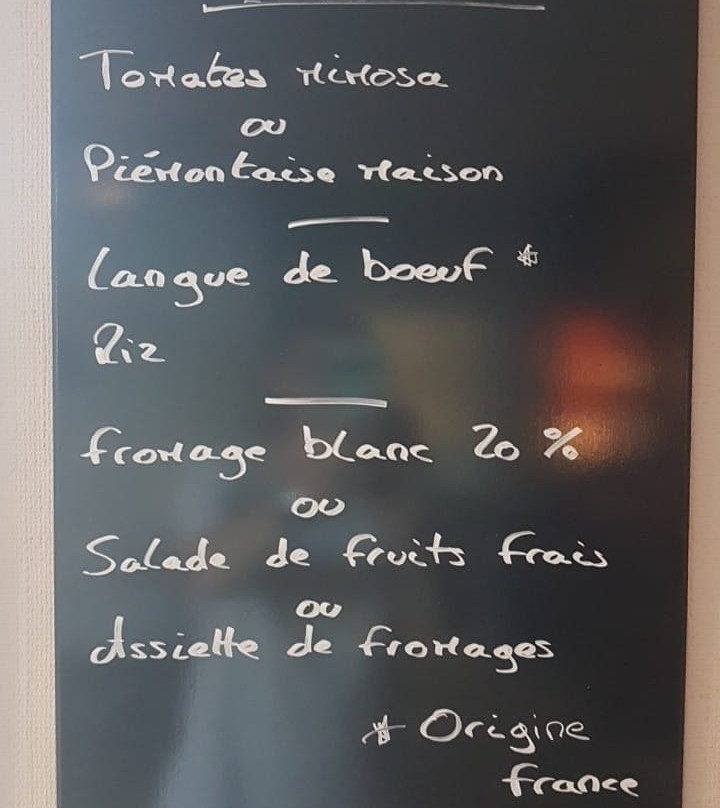 Tomates mimosa
ou
Piémontaise maison
Langue de boeuf *
Riz
fromage blanc 20 %
ou
Salade de fruits frais
ou
Assiette de fromages
* Origine
france